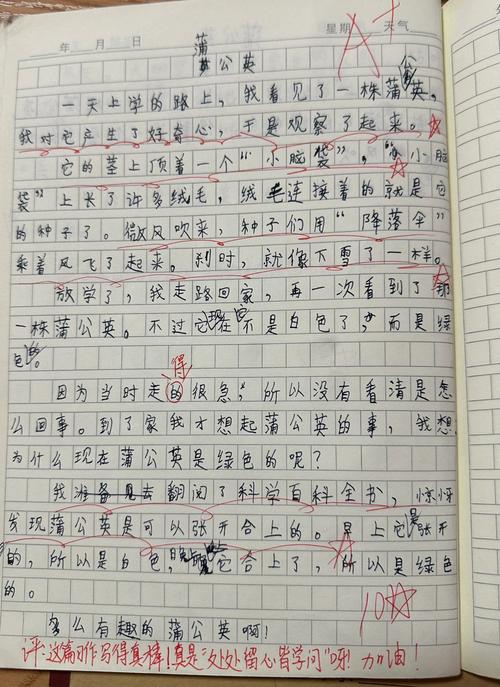 年 月 日 星期 天气
A+
蒲公英
一天上学的路上，我看见了一株蒲公英，
我对它产生了好奇心，于是观察了起来。
它的茎上顶着一个“小脑袋”，“小脑
袋”上长了许多绒毛，绒毛连接着的就是它
的种子了。微风吹来，种子们用“降落伞”
乘着风飞了起来。刹时，就像下雪了一样。
放学了，我走路回家，再一次看到了那
一株蒲公英。不过它现在不是白色了，而是绿
色的。
得
因为当时走的很急，所以没有看清是怎
么回事。到了家我才想起蒲公英的事，我想
为什么现在蒲公英是绿色的呢？
我去翻阅了科学百科全书，惊讶
发现蒲公英是可以张开合上的。早上它是张开
的，所以是白色，晚上它合上了，所以是绿色
的。
10☆
多么有趣的蒲公英啊！
评：这篇习作写得真棒！真是“处处留心皆学问”呀！加油！